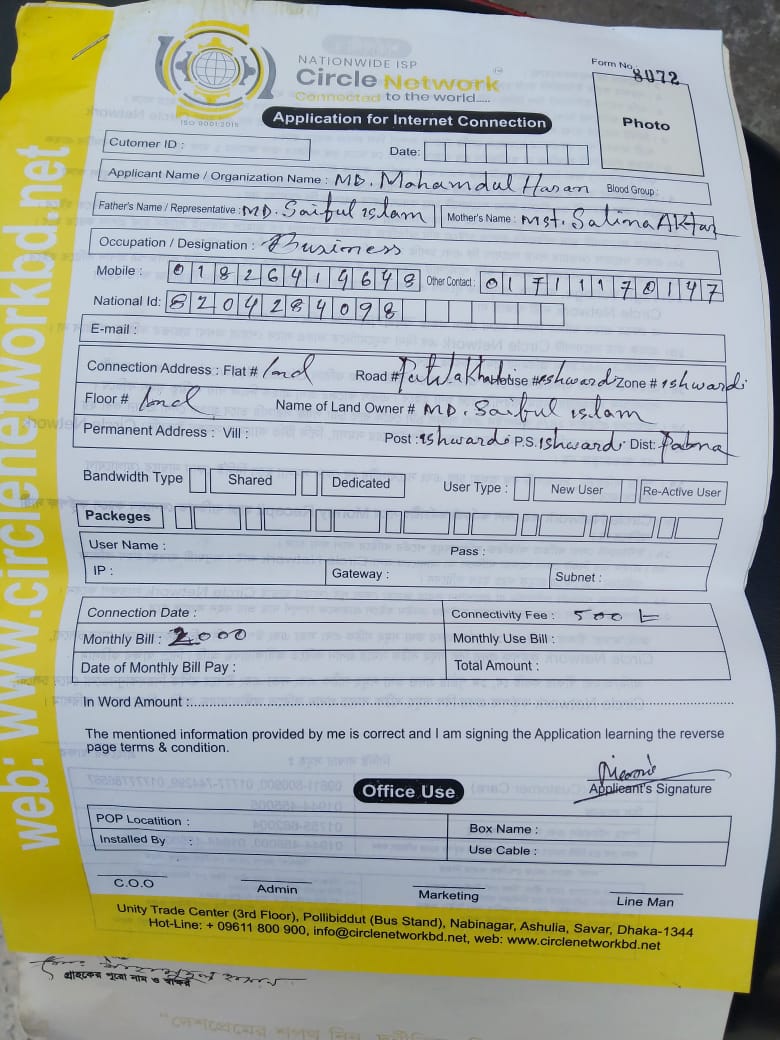 NATIONWIDE ISP
Circle Network
Connected to the world.....
ISO 9001:2015
Form No. 8072
Photo
Application for Internet Connection
Cutomer ID :
Date:
Applicant Name / Organization Name : MD. Mohamdul Hasan Blood Group :
Father's Name / Representative : MD. Saiful islam Mother's Name : Mst. Salima AKtar
Occupation / Designation : Business
Mobile : 01826419648 Other Contact : 01711170147
National Id: 8204284098
E-mail :
Connection Address : Flat # land Road # House # ishwardi Zone # ishwardi
Floor # land Name of Land Owner # MD. Saiful islam
Permanent Address : Vill : Post : ishwardi P.S. ishwardi Dist: Pabna
Bandwidth Type Shared Dedicated User Type : New User Re-Active User
Packeges
User Name : Pass :
IP : Gateway : Subnet :
Connection Date : Connectivity Fee : 500 t
Monthly Bill : 2000 Monthly Use Bill :
Date of Monthly Bill Pay : Total Amount :
In Word Amount :
The mentioned information provided by me is correct and I am signing the Application learning the reverse
page terms & condition.
Applicant's Signature
Office Use
POP Locatition : Box Name :
Installed By : Use Cable :
C.O.O Admin Marketing Line Man
Unity Trade Center (3rd Floor), Pollibiddut (Bus Stand), Nabinagar, Ashulia, Savar, Dhaka-1344
Hot-Line: + 09611 800 900, info@circlenetworkbd.net, web: www.circlenetworkbd.net
web: www.circlenetworkbd.net
গ্রাহকের পুরো নাম ও স্বাক্ষর